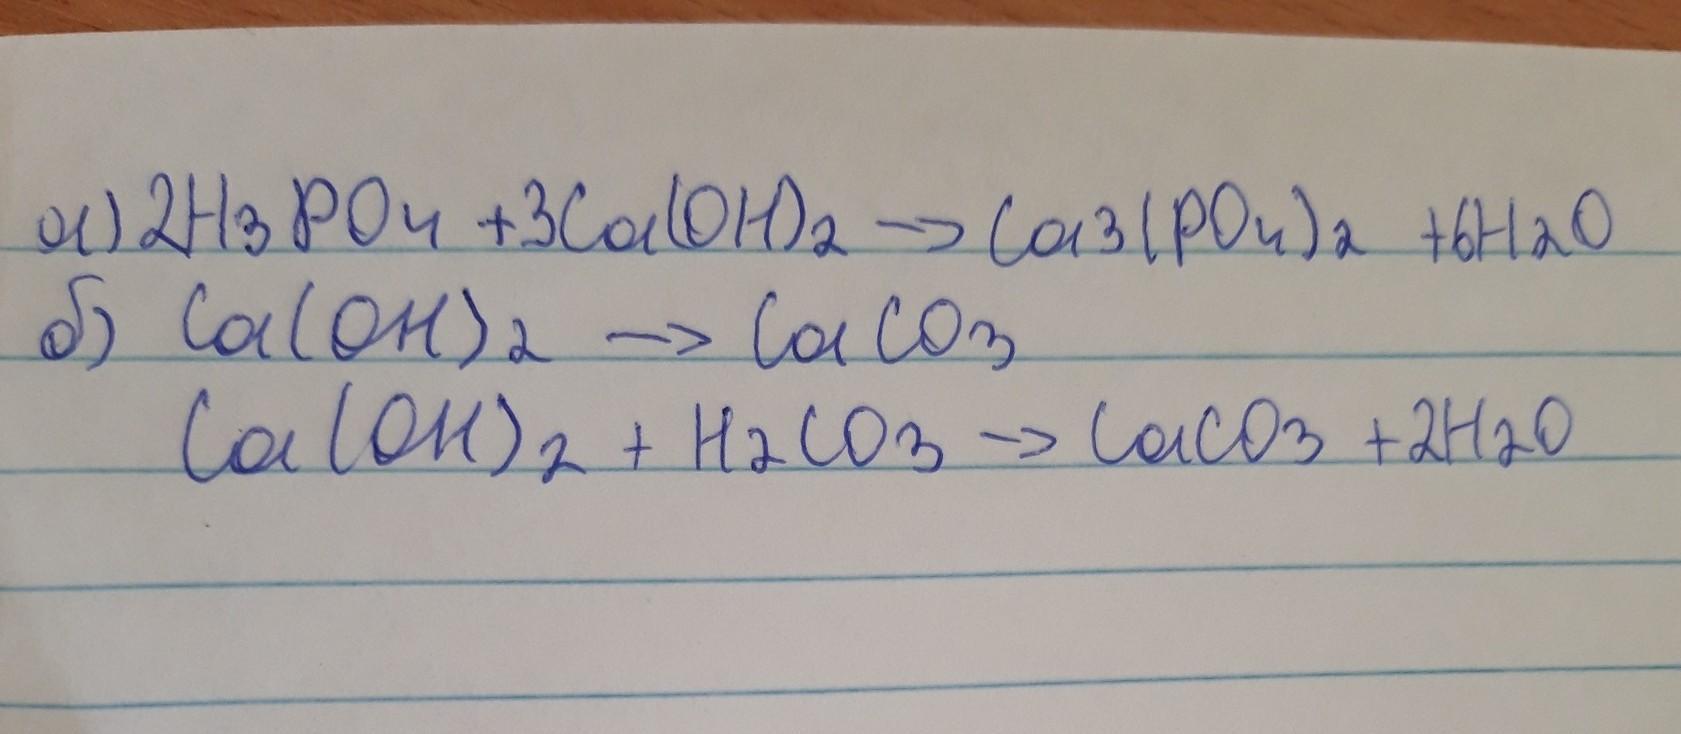 а) 2H3PO4 +3Ca(OH)2 -> Ca3(PO4)2 +6H2O
б) Ca(OH)2 -> CaCO3
Ca(OH)2 + H2CO3 -> CaCO3 +2H2O